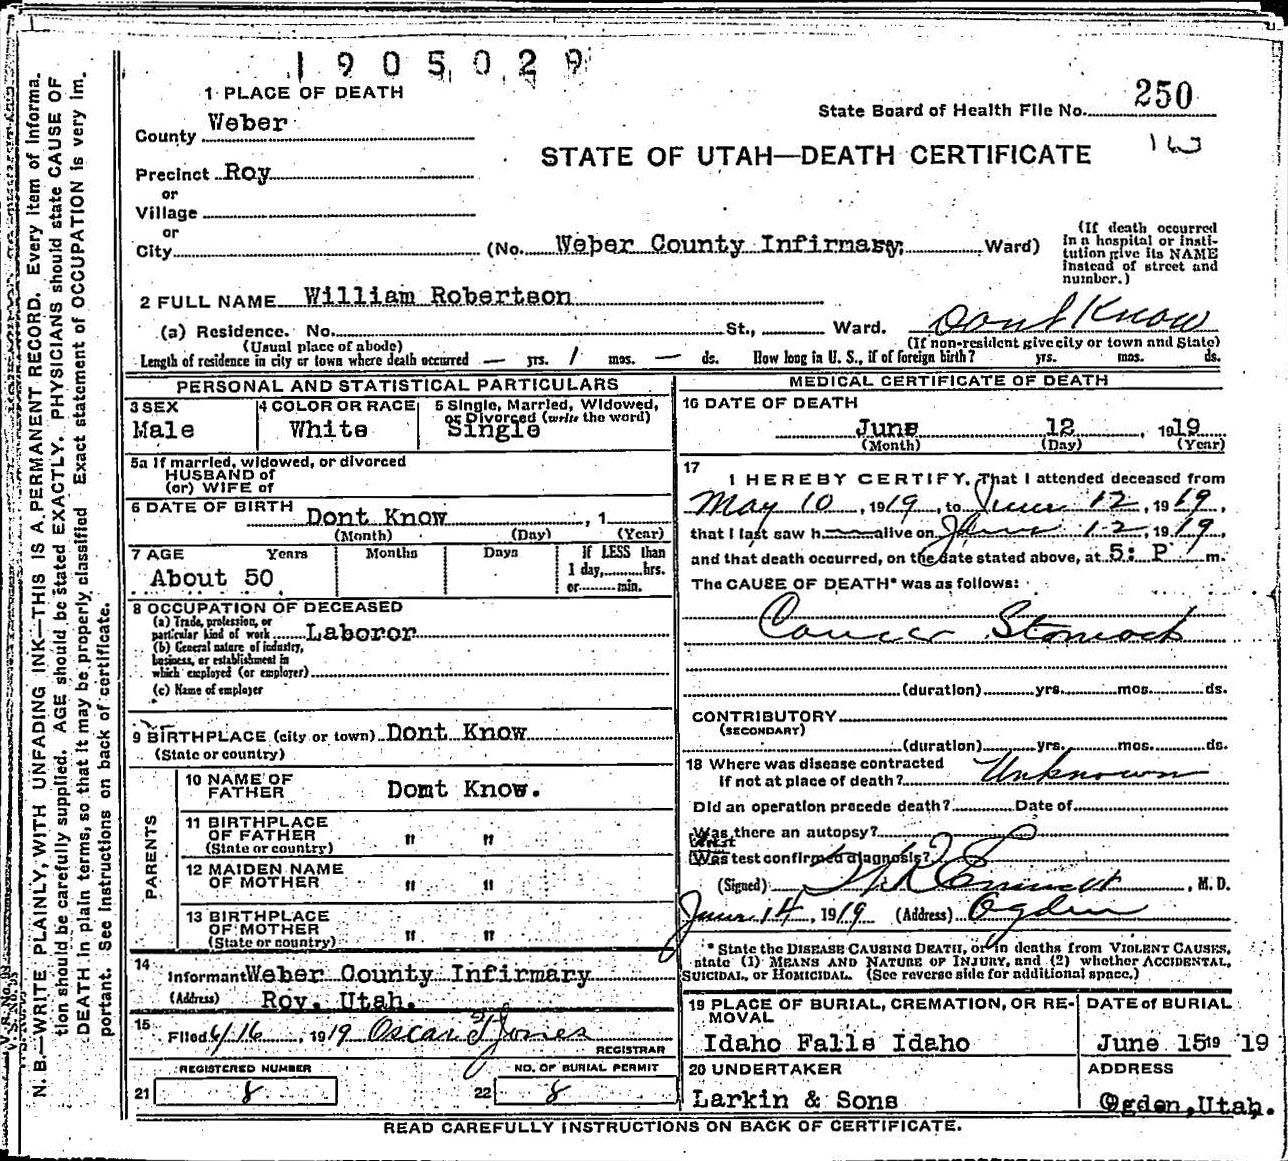 1905029
1 PLACE OF DEATH
State Board of Health File No. 250
County Weber
STATE OF UTAH—DEATH CERTIFICATE
Precinct Roy
or
Village
or
City (No. Weber County Infirmary, Ward)
(If death occurred
in a hospital or insti-
tution give its NAME
instead of street and
number.)
2 FULL NAME William Robertson
(a) Residence. No. St., Ward. Dont Know
(Usual place of abode) (If non-resident give city or town and State)
Length of residence in city or town where death occurred — yrs. 1 mos. — ds. How long in U. S., if of foreign birth? yrs. mos. ds.
PERSONAL AND STATISTICAL PARTICULARS
3 SEX
Male
4 COLOR OR RACE
White
5 Single, Married, Widowed,
or Divorced (write the word)
Single
5a If married, widowed, or divorced
HUSBAND of
(or) WIFE of
6 DATE OF BIRTH Dont Know , 1
(Month) (Day) (Year)
7 AGE Years Months Days
About 50
If LESS than
1 day, hrs.
or min.
8 OCCUPATION OF DECEASED
(a) Trade, profession, or
particular kind of work Laboror
(b) General nature of industry,
business, or establishment in
which employed (or employer)
(c) Name of employer
9 BIRTHPLACE (city or town) Dont Know
(State or country)
PARENTS
10 NAME OF
FATHER Domt Know.
11 BIRTHPLACE
OF FATHER " "
(State or country)
12 MAIDEN NAME
OF MOTHER " "
13 BIRTHPLACE
OF MOTHER " "
(State or country)
14
Informant Weber County Infirmary
(Address) Roy, Utah.
15
Filed 6/16, 1919 Oscar Jones
REGISTRAR
REGISTERED NUMBER
21 8
NO. OF BURIAL PERMIT
22 8
MEDICAL CERTIFICATE OF DEATH
16 DATE OF DEATH
June 12, 1919
(Month) (Day) (Year)
17
I HEREBY CERTIFY, That I attended deceased from
May 10, 1919, to June 12, 1919,
that I last saw h— alive on June 12, 1919,
and that death occurred, on the date stated above, at 5: P m.
The CAUSE OF DEATH* was as follows:
Cancer Stomach
(duration) yrs. mos. ds.
CONTRIBUTORY
(SECONDARY)
(duration) yrs. mos. ds.
18 Where was disease contracted
if not at place of death? Unknown
Did an operation precede death? Date of
Was there an autopsy?
What
Was test confirmed diagnosis?
(Signed) Emmett, M. D.
June 14, 1919 (Address) Ogden
* State the DISEASE CAUSING DEATH, or in deaths from VIOLENT CAUSES,
state (1) MEANS AND NATURE OF INJURY, and (2) whether ACCIDENTAL,
SUICIDAL, or HOMICIDAL. (See reverse side for additional space.)
19 PLACE OF BURIAL, CREMATION, OR RE-
MOVAL
Idaho Falls Idaho
DATE of BURIAL
June 15 19 19
20 UNDERTAKER
Larkin & Sons
ADDRESS
Ogden, Utah.
READ CAREFULLY INSTRUCTIONS ON BACK OF CERTIFICATE.
N. B.—WRITE PLAINLY, WITH UNFADING INK—THIS IS A PERMANENT RECORD. Every item of informa-
tion should be carefully supplied. AGE should be stated EXACTLY. PHYSICIANS should state CAUSE OF
DEATH in plain terms, so that it may be properly classified. Exact statement of OCCUPATION is very im-
portant. See instructions on back of certificate.